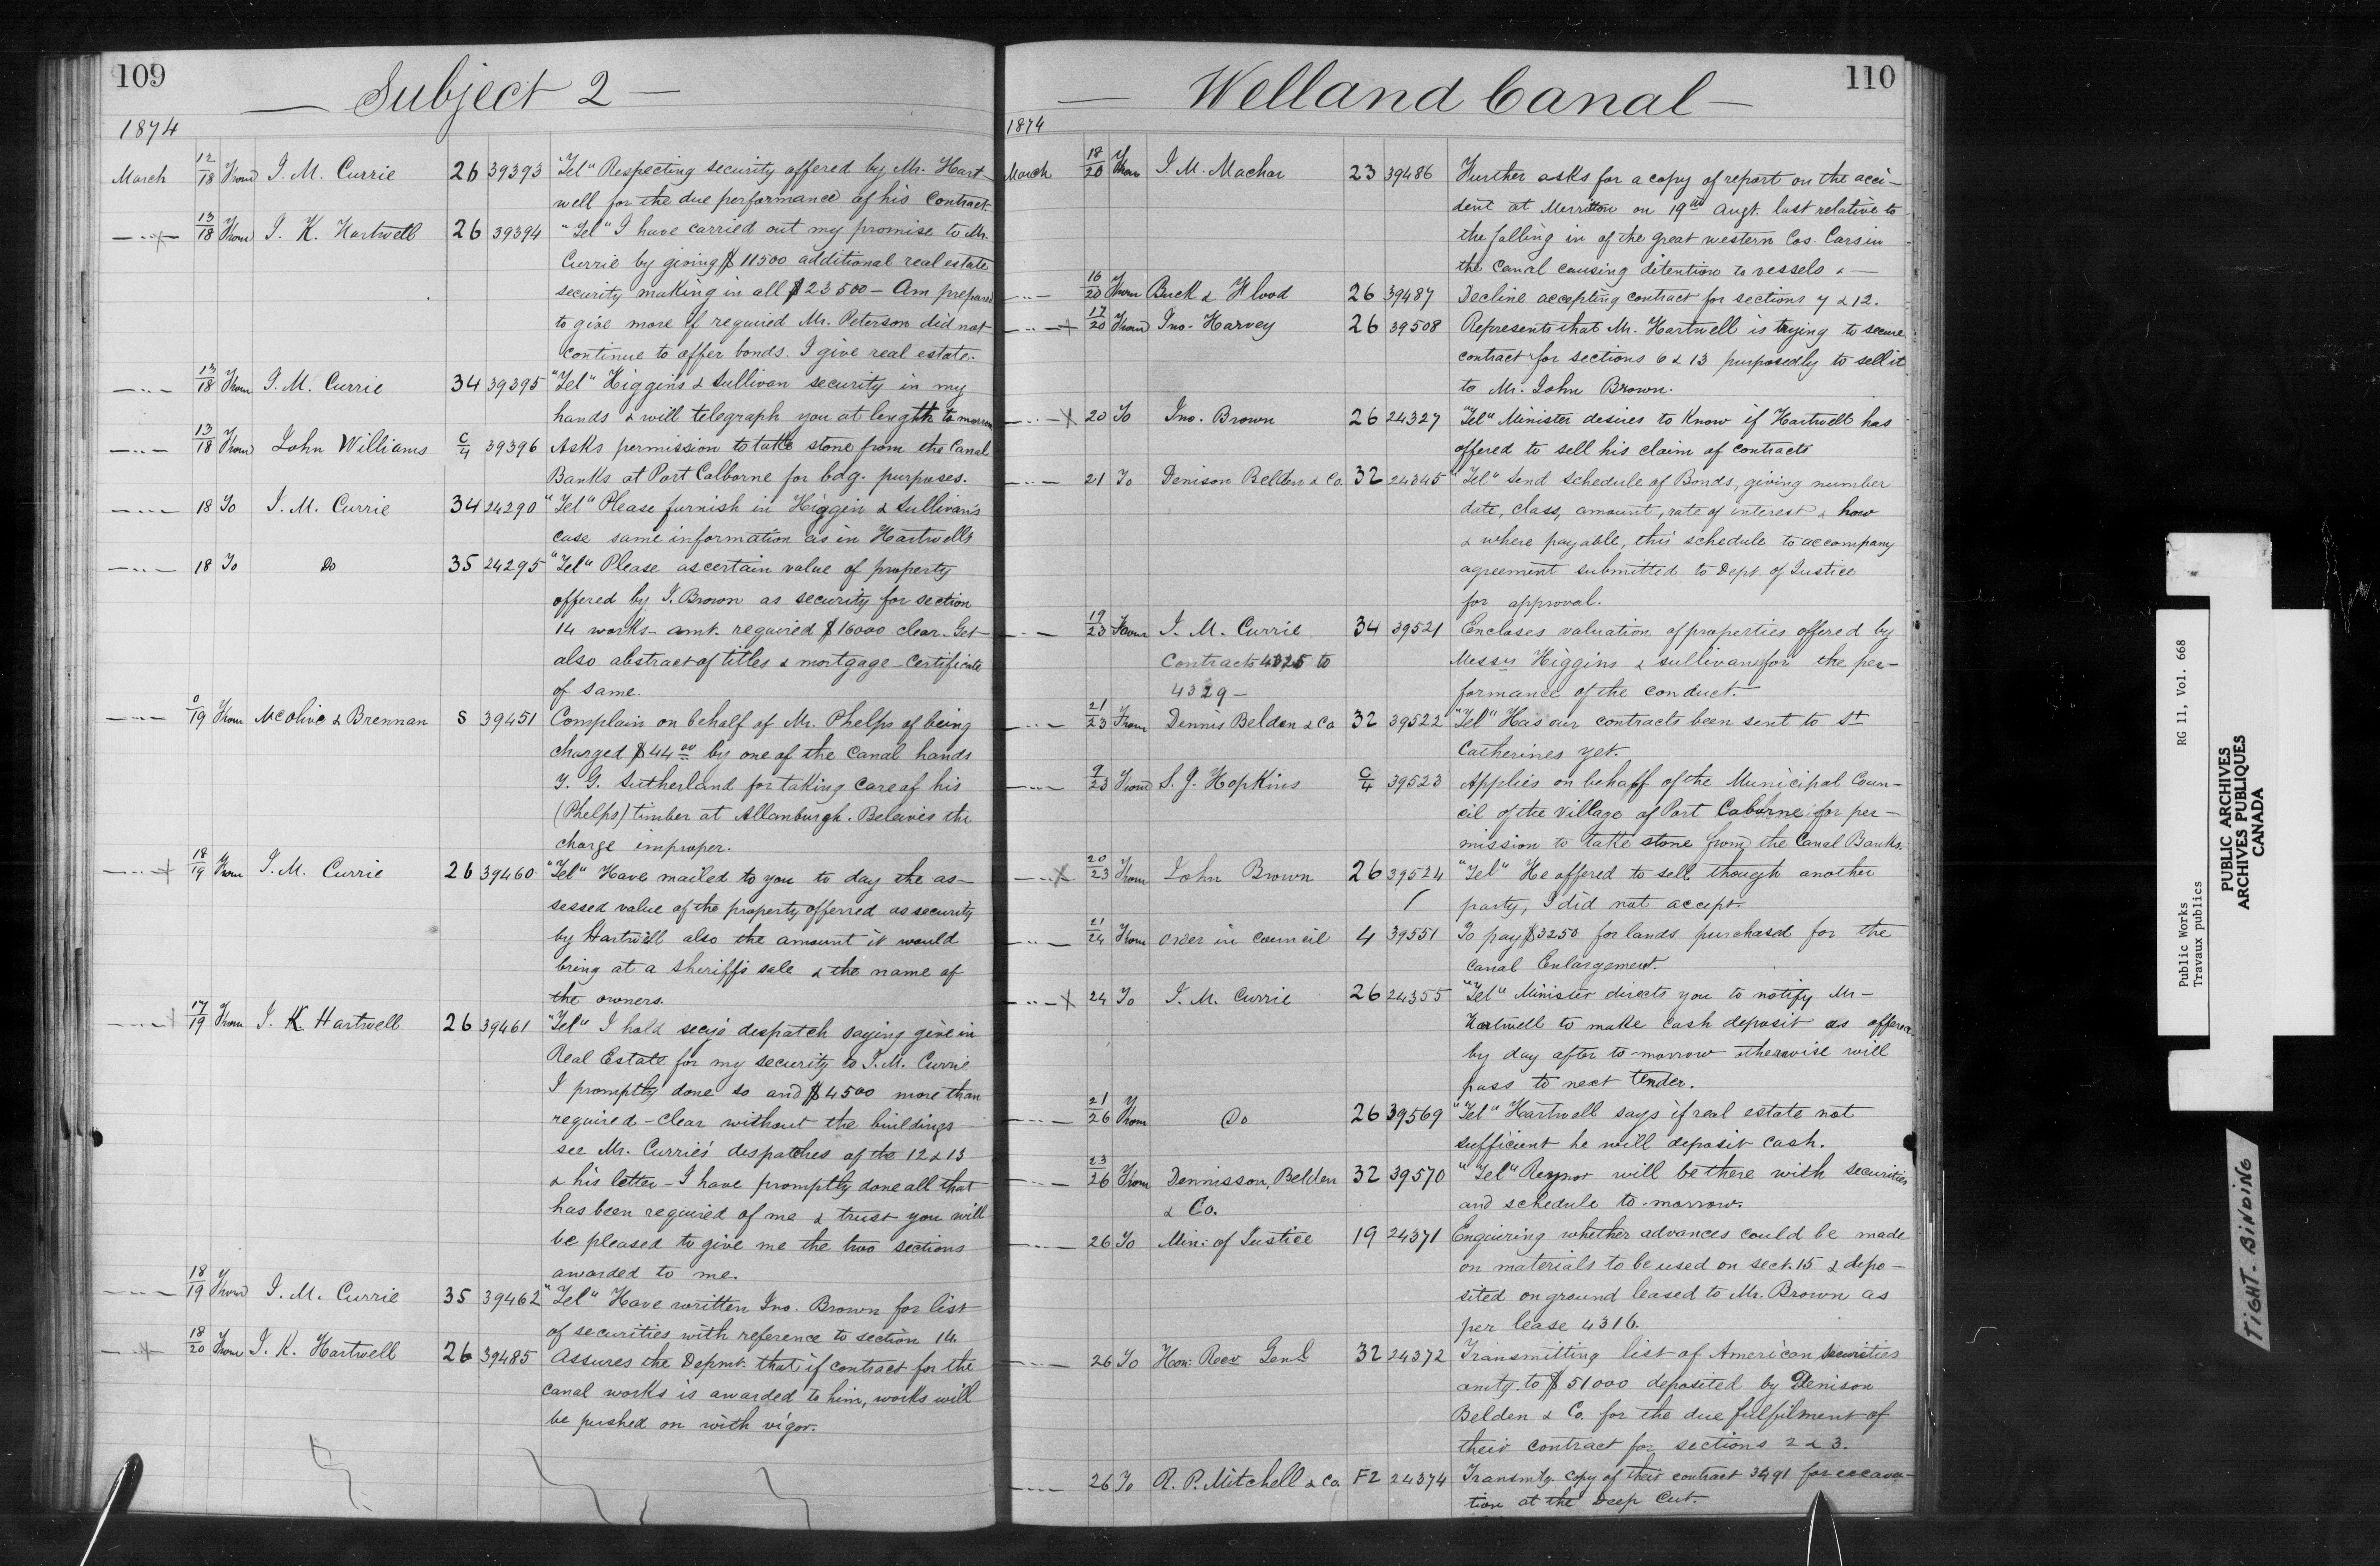 109
Subject 2
1874
March 12/18 From J. M. Currie 26 39393 "Tel" Respecting security offered by Mr. Hart-
well for the due performance of his Contract.
13/18 From J. K. Hartwell 26 39394 "Tel" I have carried out my promise to Mr.
Currie by giving $11500 additional real estate
security making in all $23500 - Am prepared
to give more if required Mr. Peterson did not
continue to offer bonds. I give real estate.
13/18 From J. M. Currie 34 39395 "Tel" Higgins & Sullivan security in my
hands & will telegraph you at lenghth to morrow
13/18 From John Williams C/4 39396 Asks permission to take stone from the Canal
Banks at Port Colborne for bdg. purposes.
18 To J. M. Currie 34 24290 "Tel" Please furnish in Higgin & Sullivan's
case same information as in Hartwell's
18 To Do 35 24295 "Tel" Please ascertain value of property
offered by J. Brown as security for section
14 works - amt. required $16000 clear. Get
also abstract of titles & mortgage certificate
of same.
19 From McClive & Brennan S 39451 Complain on behalf of Mr. Phelps of being
charged $44.00 by one of the Canal hands
Y. G. Sutherland for taking care of his
(Phelps) timber at Allanburgh. Beleives the
charge improper.
18/19 From J. M. Currie 26 39460 "Tel" Have mailed to you to day the as-
sessed value of the property offerred as security
by Hartwell also the amount it would
bring at a Sheriff's sale & the name of
the owners.
17/19 From J. K. Hartwell 26 39461 "Tel" I hold secy's despatch saying give in
Real Estate for my security to J. M. Currie
I promptly done so and $4500 more than
required - clear without the buildings
see Mr. Currie's despatches of the 12 & 13
& his letter - I have promptly done all that
has been required of me & trust you will
be pleased to give me the two sections
awarded to me.
18/19 From J. M. Currie 35 39462 "Tel" Have written Jno. Brown for list
of securities with reference to section 14.
18/20 From J. K. Hartwell 26 39485 Assures the Depmt. that if contract for the
Canal works is awarded to him, works will
be pushed on with vigor.
110
Welland Canal
1874
March 18/20 From J. M. Machar 23 39486 Further asks for a copy of report on the acci-
dent at Merritton on 19th Augt. last relative to
the falling in of the great western Cos. Cars in
the Canal causing detention to vessels &
16/20 From Buck & Flood 26 39487 Decline accepting contract for sections 7 & 12.
17/20 From Jno. Harvey 26 39508 Represents that Mr. Hartwell is trying to secure
contract for sections 6 & 13 purposedly to sell it
to Mr. John Brown.
20 To Jno. Brown 26 24327 "Tel" Minister desires to know if Hartwell has
offered to sell his claim of contracts
21 To Denison Belden & Co. 32 24345 "Tel" Send schedule of Bonds, giving number
date, class, amount, rate of interest & how
& where payable, this schedule to accompany
agreement submitted to Dept. of Justice
for approval.
19/23 From J. M. Currie 34 39521 Encloses valuation of properties offered by
Contracts 4325 to Messrs Higgins & Sullivan for the per-
4329 - formance of the conduct.
21/23 From Dennis Belden & Co 32 39522 "Tel" Has our contracts been sent to St
Catherines yet.
9/23 From S. J. Hopkins C/4 39523 Applies on behalf of the Municipal Coun-
cil of the Village of Port Coborne for per-
mission to take stone from the Canal Banks.
20/23 From John Brown 26 39524 "Tel" He offered to sell though another
party, I did not accept.
21/24 From Order in Council 4 39551 To pay $3250 for lands purchased for the
Canal Enlargement.
24 To J. M. Currie 26 24355 "Tel" Minister directs you to notify Mr -
Hartwell to make cash deposit as offered
by day after to-morrow otherwise will
pass to next tender.
21/26 From Do 26 39569 "Tel" Hartwell says if real estate not
sufficient he will deposit cash.
23/26 From Dennisson, Belden 32 39570 "Tel" Reynor will be there with securities
& Co. and schedule to-morrow.
26 To Min: of Justice 19 24371 Enquiring whether advances could be made
on materials to be used on sect. 15 & depo-
sited on ground leased to Mr. Brown as
per lease 4316.
26 To Hon: Recv Genl. 32 24372 Transmitting list of American securities
amtg. to $51000 deposited by Denison
Belden & Co. for the due fulfilment of
their contract for sections 2 & 3.
26 To R. P. Mitchell & Co. F2 24374 Transmtg. copy of their contract 3491 for excava-
tion at the Deep Cut.
Public Works
Travaux publics
RG 11, Vol. 668
PUBLIC ARCHIVES
ARCHIVES PUBLIQUES
CANADA
TIGHT-BINDING